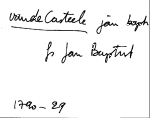 van de Casteele jan bapti
fs Jan Baptist
1790-29